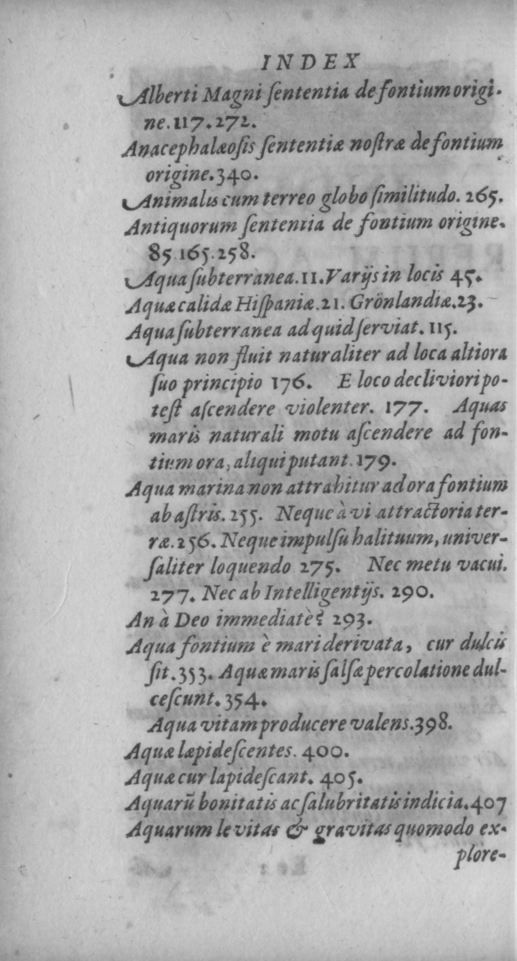 INDEX
Alberti Magni ſententia de fontium origi-
ne. 117. 272.
Anacephalæoſis ſententiæ noſtræ de fontium
origine. 340.
Animalis cum terreo globo ſimilitudo. 265.
Antiquorum ſententia de fontium origine.
85. 165. 258.
Aqua ſubterranea. 11. Varijs in locis 45.
Aquæ calidæ Hiſpaniæ. 21. Grönlandiæ. 23.
Aqua ſubterranea ad quid ſerviat. 115.
Aqua non fluit naturaliter ad loca altiora
ſuo principio 176. E loco decliviori po-
teſt aſcendere violenter. 177. Aquas
maris naturali motu aſcendere ad fon-
tium ora, aliqui putant. 179.
Aqua marina non attrahitur ad ora fontium
ab aſtris. 255. Neque à vi attractoria ter-
ræ. 256. Neque impulſu halituum, univer-
ſaliter loquendo 275. Nec metu vacui.
277. Nec ab Intelligentijs. 290.
An à Deo immediatè? 293.
Aqua fontium è mari derivata, cur dulcis
ſit. 353. Aquæ maris ſalſæ percolatione dul-
ceſcunt. 354.
Aqua vitam producere valens. 398.
Aquæ lapideſcentes. 400.
Aquæ cur lapideſcant. 405.
Aquarū bonitatis ac ſalubritatis indicia. 407
Aquarum levitas & gravitas quomodo ex-
plore-